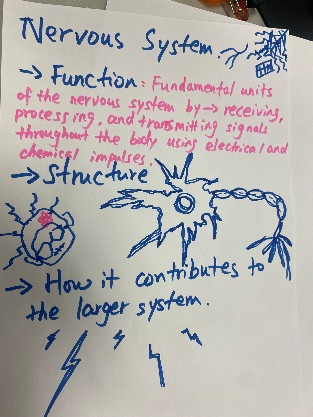 Nervous System.
→ Function: Fundamental units
of the nervous system by → receiving,
processing, and transmitting signals
throughout the body using electrical and
chemical impulses.
→ Structure
→ How it contributes to
the larger system.